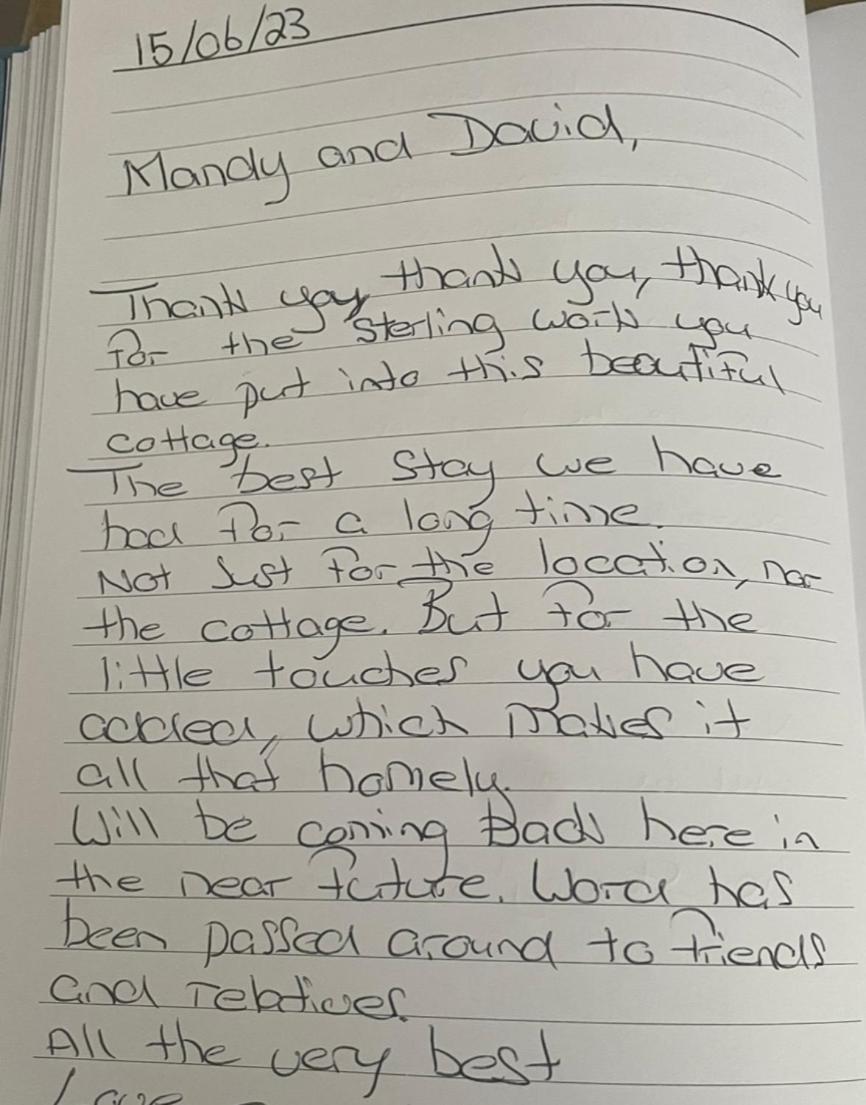 15/06/23
Mandy and David,
Thank you, thank you, thank you
for the sterling work you
have put into this beautiful
cottage.
The best stay we have
had for a long time.
Not Just for the location, nor
the cottage. But for the
little touches you have
added, which makes it
all that homely.
Will be coming Back here in
the near future. Word has
been passed around to friends
and relatives.
All the very best
Love